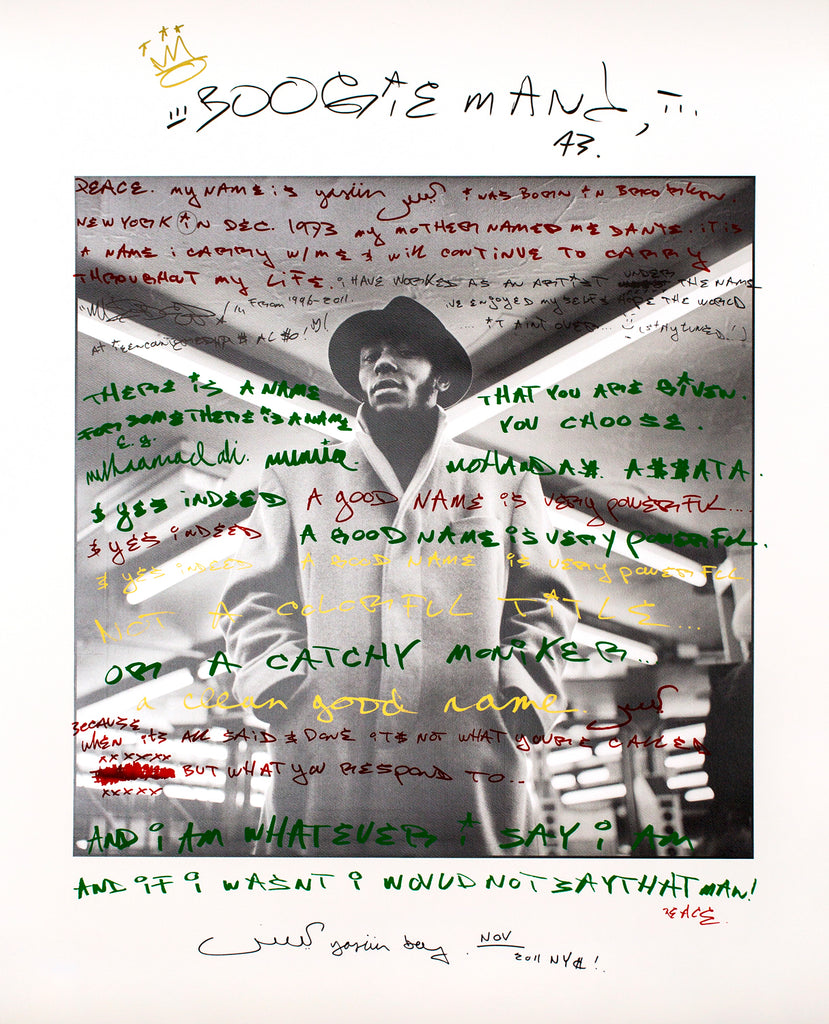 BOOGiE mAN!,
A3.
PEACE. my NAME iS yasiin يسين i WAS BORN iN BROOKLYN.
NEW YORK iN DEC. 1973 my MOTHER NAMED ME DANTE. iT iS
A NAME i CARRY W/ME & will CONTINUE TO CARRY
THROUGHOUT my LiFE. i HAVE WORKED AS AN ARTiST UNDER THE NAME
" " FROM 1996-2011. i'VE ENJOYED MYSELF & HOPE THE WORLD
iT AiNT OVER... (STAY TUNED!)
THERE iS A NAME THAT YOU ARE GiVEN.
FOR SOME THERE iS A NAME YOU CHOOSE.
e.g.
muhammad ali. mumia. MOHANDAS. A$$ATA.
& yES iNDEED A gOOD NAME iS VERy POWERFUL...
& yES iNDEED A GOOD NAME iS VERy POWERFUL.
& yES iNDEED A GOOD NAME iS VERy POWERFUL
NOT A COLORFUL TiTLE...
OR A CATCHY MONiKER..
a clean good name. يسين
BECAUSE
WHEN iTS ALL SAiD & DONE iT$ NOT WHAT YOU'RE CALLED
xx xxxxx
BUT WHAT YOU RESPOND TO...
xxxxx
AND i AM WHATEVER i SAY i AM
AND iF i WASNT i WOULD NOT SAY THAT MAN!
PEACE.
يسين yasiin bey. NOV
2011 NYC!.